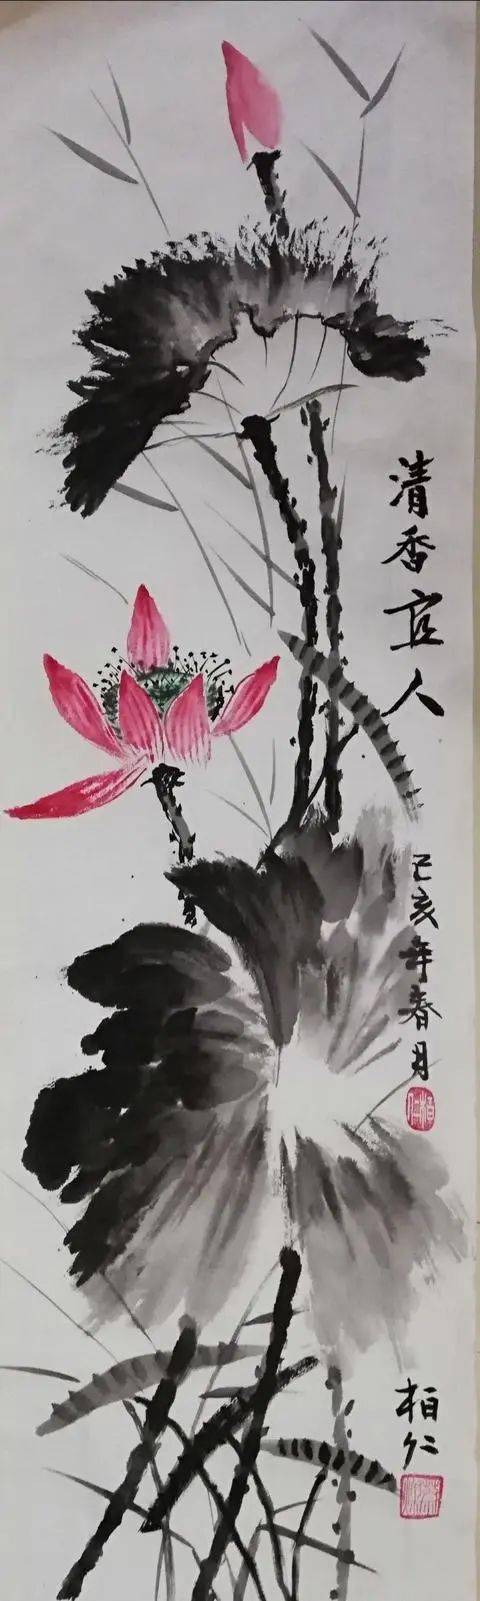 清香宜人
己亥年春月
柏仁
柏仁